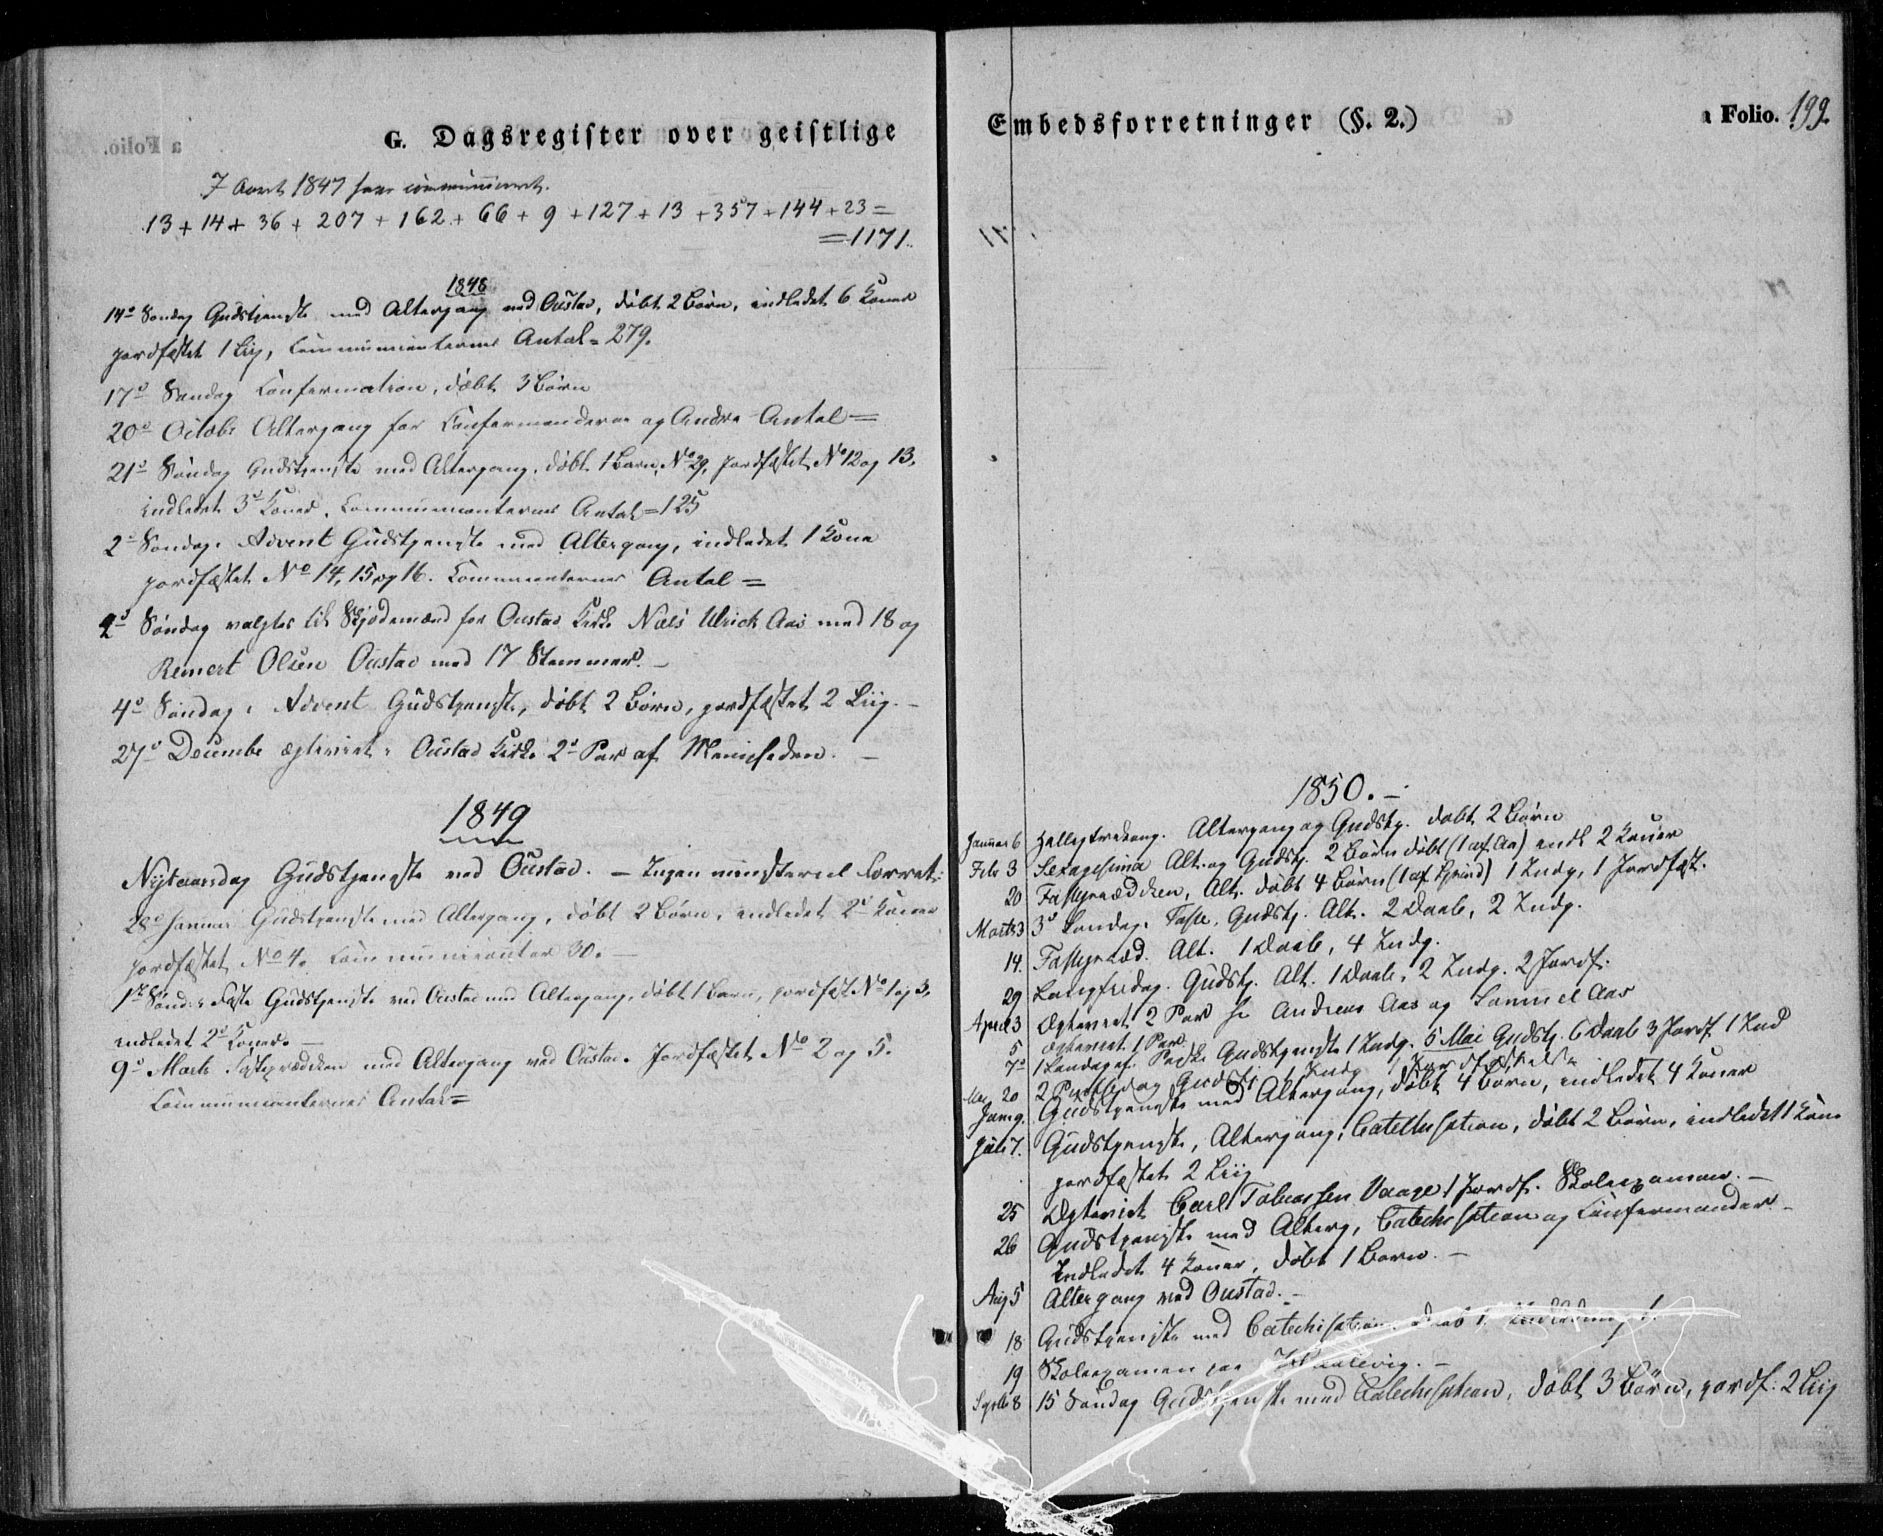 G. Dagsregister over geistlige
I Aaret 1847 have communiceret
13 + 14 + 36 + 207 + 162 + 66 + 9 + 127 + 13 + 357 + 144 + 23 =
= 1171.
1848
14de Søndag Gudstjeneste med Altergang ved Oustad, døbt 2 Børn, indledet 6 Koner
jordfæstet 1 Liig, Communicanternes Antal = 279.
17de Søndag Confirmation, døbt 3 Børn
20de Octobr Altergang for Confirmanderne og Andre Antal =
21de Søndag Gudstjeneste med Altergang, døbt 1 Barn, No 29, jordfæstet No 12 og 13,
indledet 3de Koner, Communicanternes Antal = 125
2de Søndag i Advent Gudstjeneste med Altergang, indledet 1 Kone
jordfæstet No 14, 15 og 16. Communicanternes Antal =
Søndag valgtes til Medhjelpere for Oustad Kirke Niels Ulrick Aas med 18 og
Reinert Olsen Oustad med 17 Stemmer. –
4de Søndag i Advent Gudstjeneste, døbt 2 Børn, jordfæstet 2 Liig. –
27de Decembr ægteviet i Oustad Kirke 2de Par af Menigheden. –
1849
Nytaarsdag Gudstjeneste ved Oustad. – Ingen ministeriel Forret:
28de Januar Gudstjeneste med Altergang, døbt 2 Børn, indledet 2de Koner
jordfæstet No 4. Communicanter 30. –
1ste Sønd. i Faste Gudstjeneste ved Oustad med Altergang, døbt 1 Barn, jordfæst. No 1 og 3,
indledet 2de Koner. –
9de Marts Fasteprædiken med Altergang ved Oustad. Jordfæstet No 2 og 5.
Communicanternes Antal =
Embedsforretninger (§. 2.)
a Folio. 199.
1850. –
Januar 6 Helligtrekong. Altergang og Gudstj. døbt 2 Børn
Febr 3 Sexagesima Alt. og Gudstj. 2 Børn døbt (1 af Aa) indl 2 Koner
20 Fasteprædiken, Alt. døbt 4 Børn 1 Indg, 1 Jordfæst.
Marts 3 3de Søndag i Faste, Gudstj. Alt. 2 Daab, 2 Indg.
14. Fastepræd. Alt. 1 Daab, 4 Indg.
29 Langfredag. Gudstj. Alt. 1 Daab, 2 Indg. 2 Jordf.
April 3 Ægteviet 2 Par Andreas Aas og Samuel Aas
5 Ægteviet 1 Par.
7de 1 Søndag ef. Paaske Gudstjeneste 1 Indg. 5 Mai Gudstj. 6 Daab 3 Jordf. 1 Ind
Mai 20 2 Pintsedag Gudstj. 1 Indg 1 Jordfæstelse
Juni 9. Gudstjeneste med Altergang, døbt 4 Børn, indledet 4 Koner
Juli 7. Gudstjeneste, Altergang, Catechisation, døbt 2 Børn, indledet 1 Kone
jordfæstet 2 Liig
25 Ægteviet Carl Tobiassen Vaage 1 Jordf. Skoleexamen. –
26 Gudstjeneste med Alterg, Catechisation og Confirmander –
Indledet 4 Koner, døbt 1 Barn. –
Aug 5 Altergang ved Oustad. –
18 Gudstjeneste med Catechisation. Daab 1. Indledning 1.
19 Skoleexamen paa
Septb 8 15 Søndag Gudstjeneste med Catechisation, døbt 3 Børn, jordf: 2 Liig